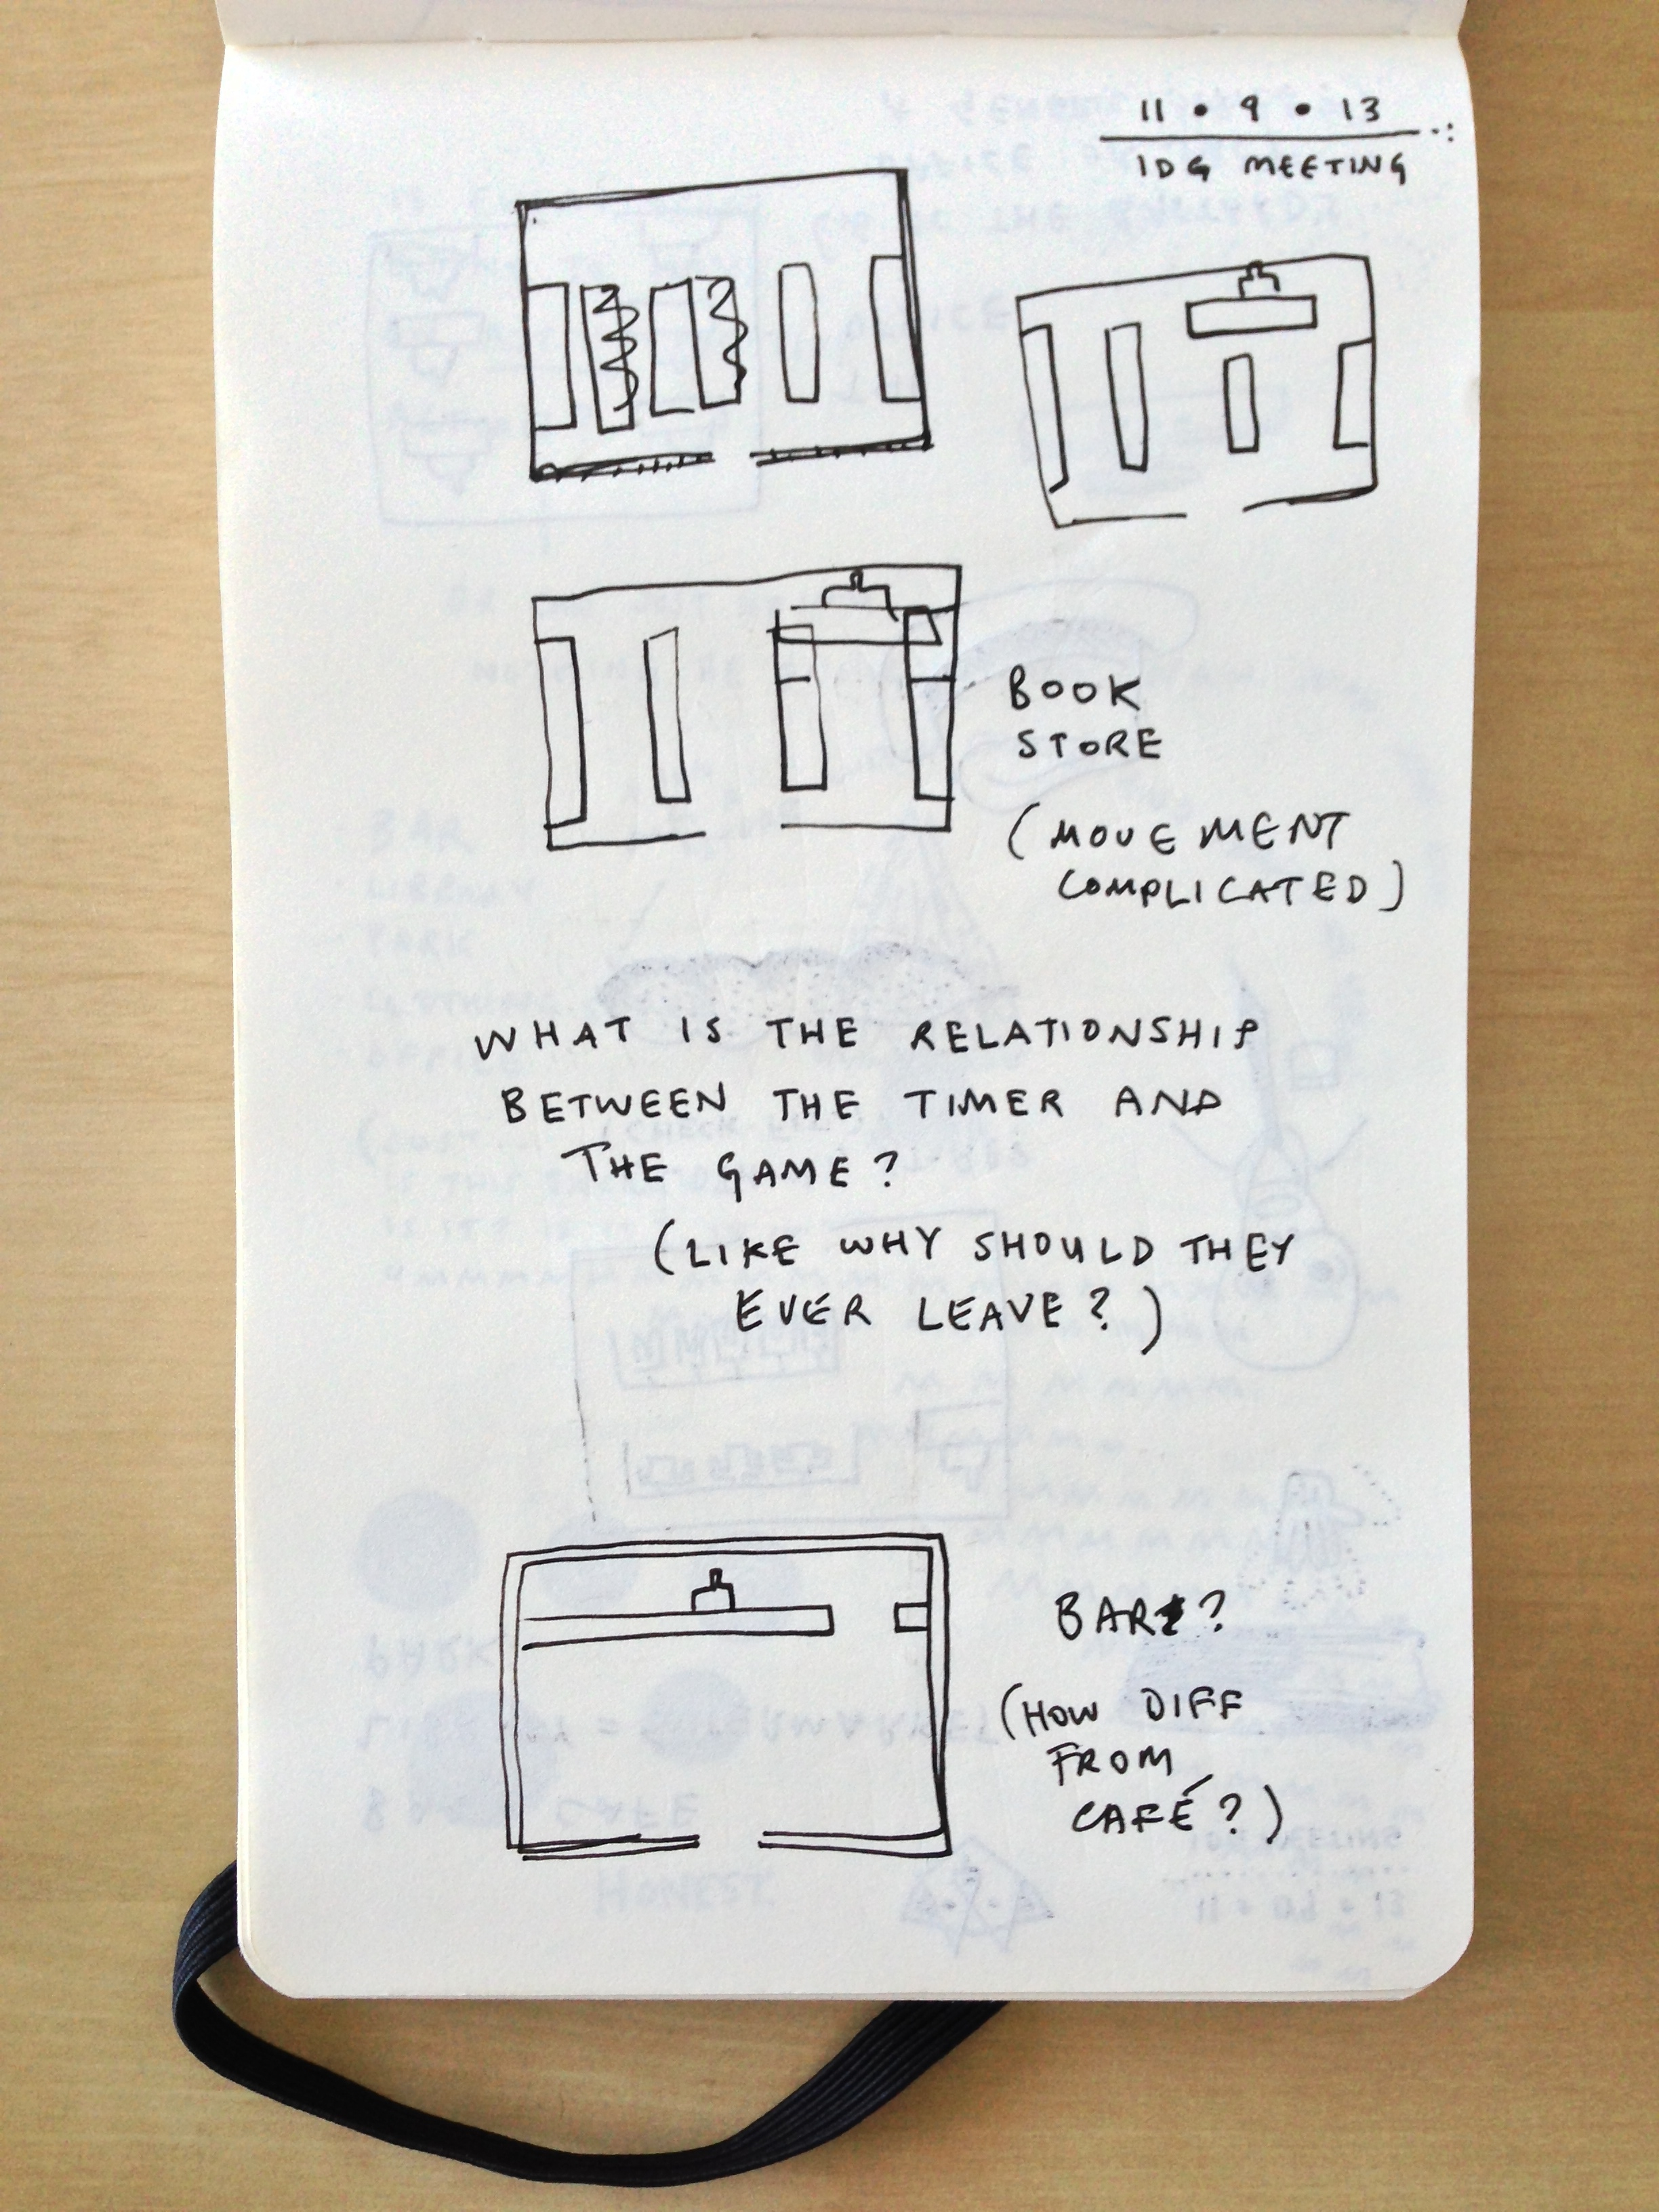 11 • 9 • 13
IDG MEETING
BOOK
STORE
(MOVEMENT
COMPLICATED)
WHAT IS THE RELATIONSHIP
BETWEEN THE TIMER AND
THE GAME?
(LIKE WHY SHOULD THEY
EVER LEAVE?)
BAR?
(HOW DIFF
FROM
CAFÉ?)